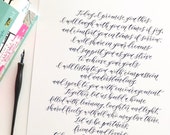 Today, I promise you this:
I will laugh with you in times of joy,
and comfort you in times of sorrow.
I will share in your dreams
and support you as you strive
to achieve your goals.
I will listen to you with compassion
and understanding,
and speak to you with encouragement.
Together, let us build a home
filled with learning, laughter, and light,
shared freely with all who may live there.
Let us be partners,
friends and lovers